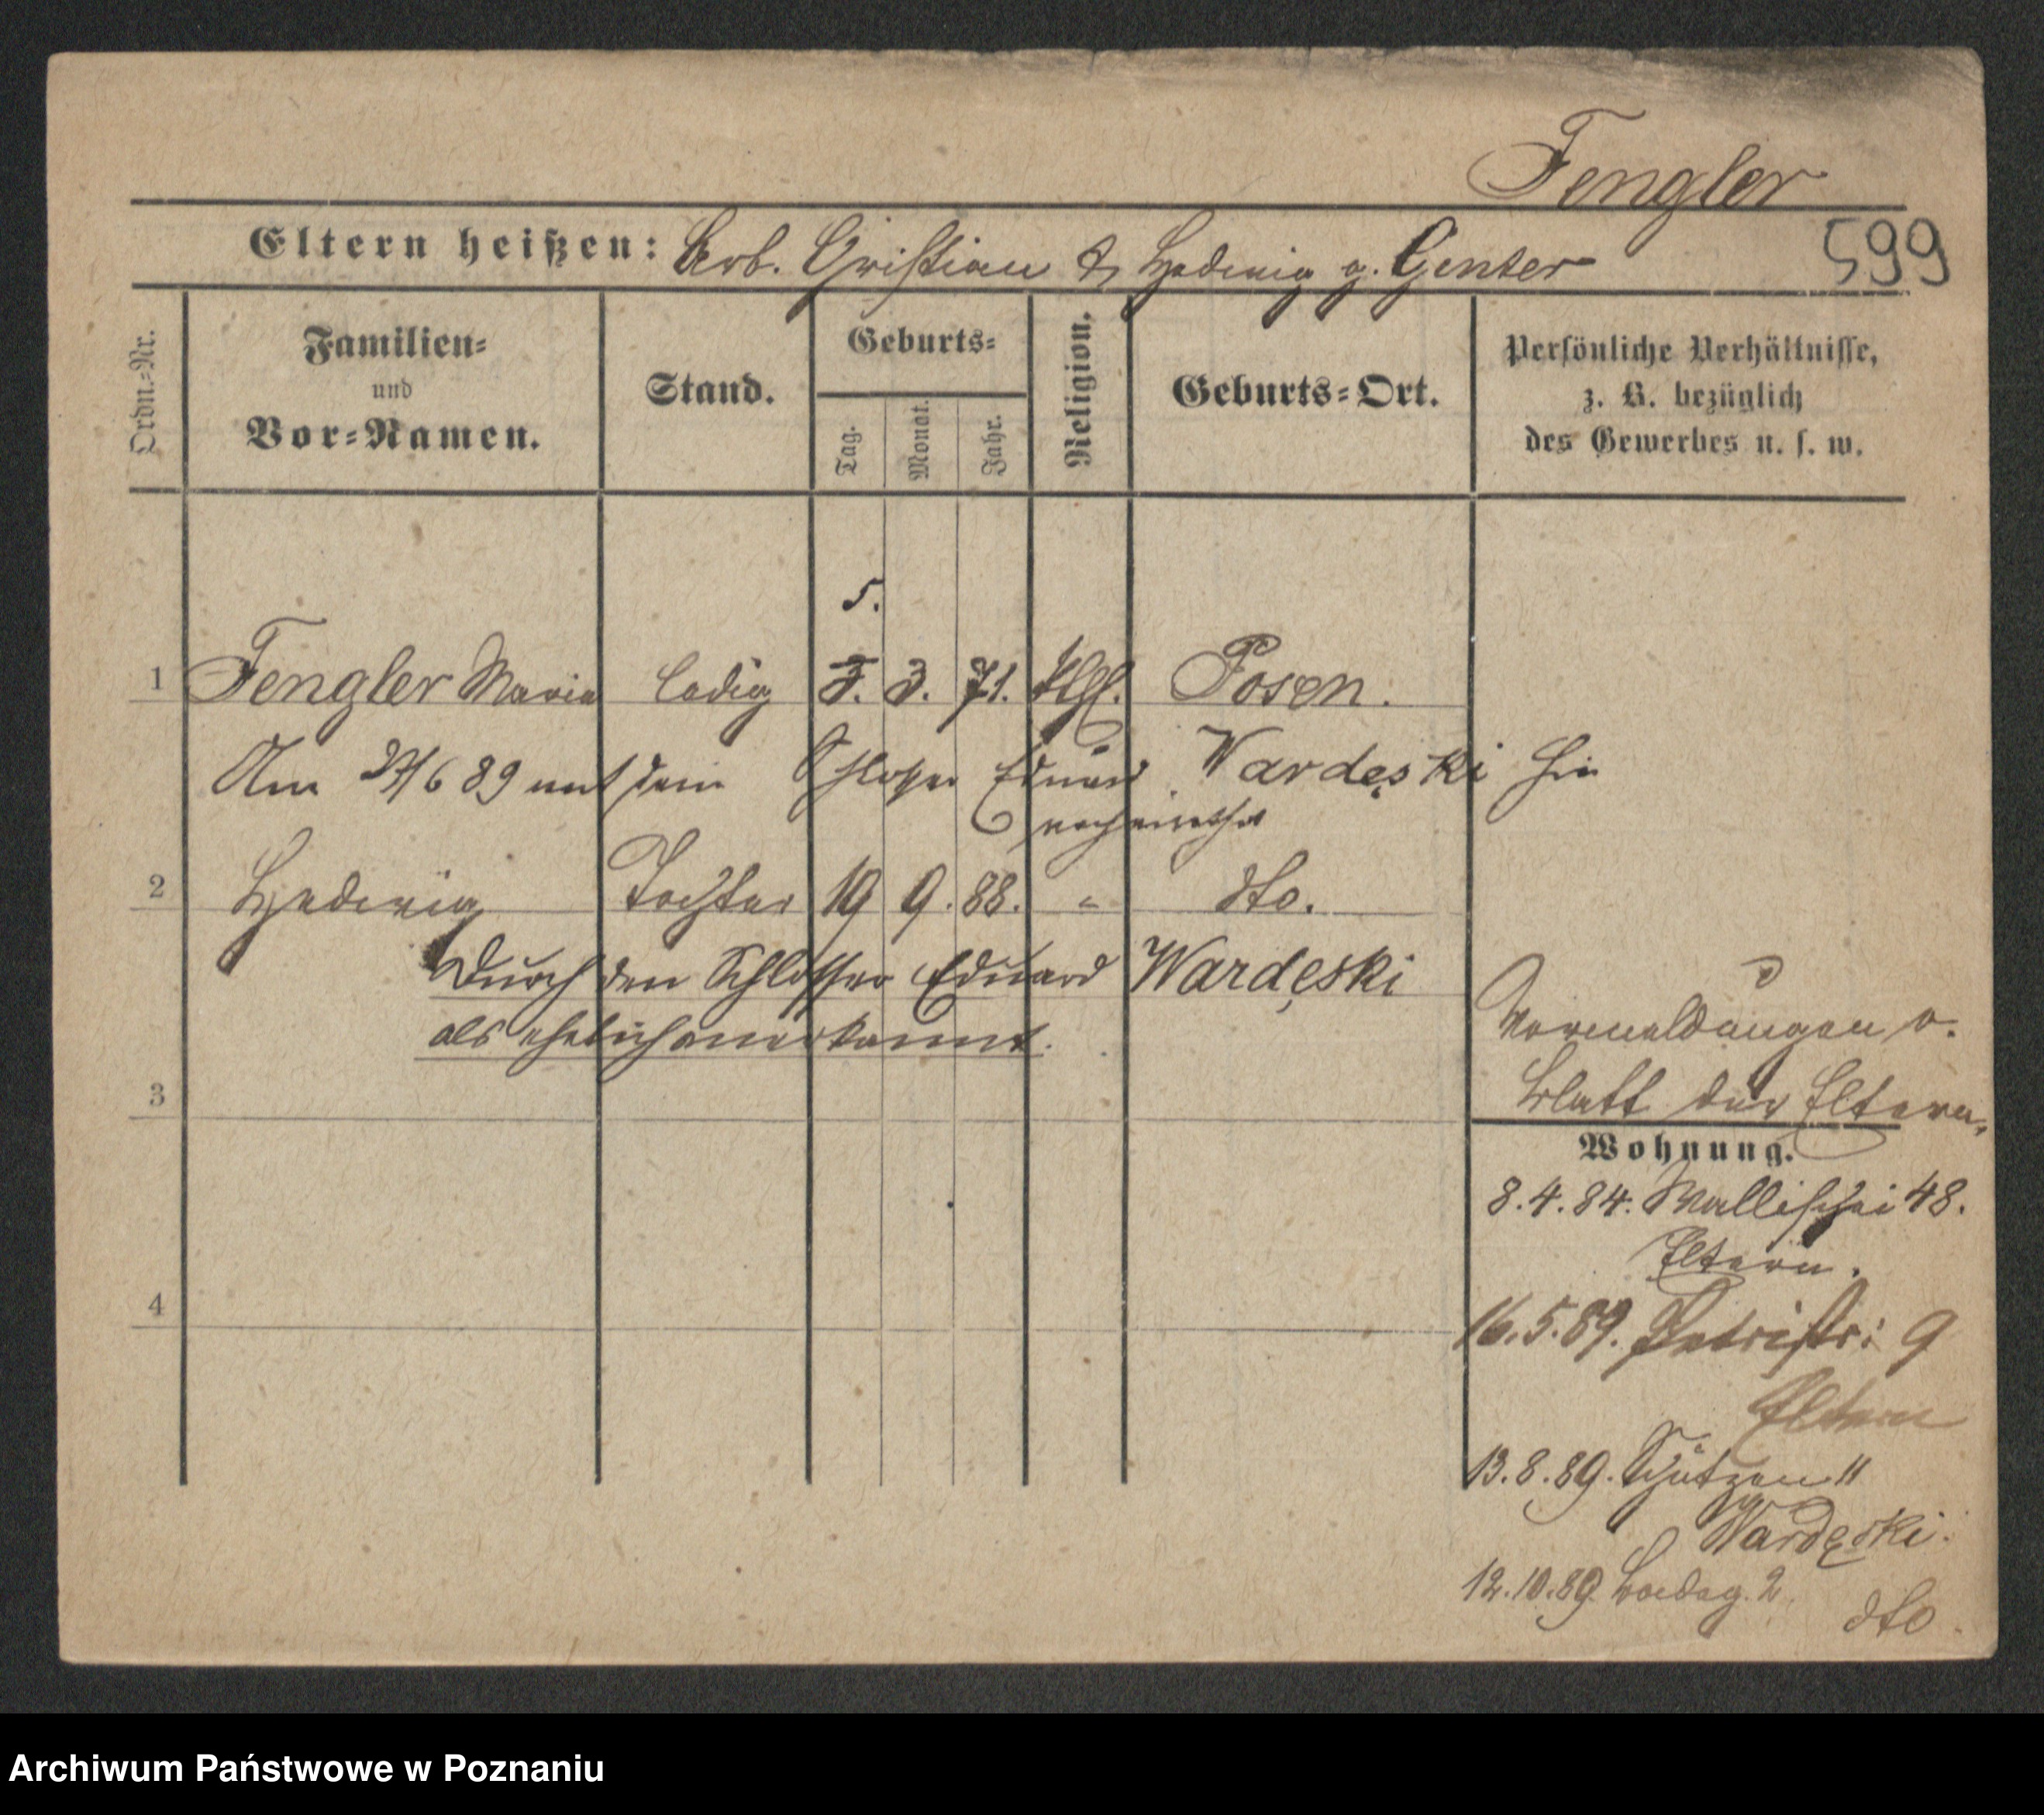 Fengler
599
Eltern heißen: Arb. Christian & Hedwig g. Genter
Ordn.-Nr.
Familien- und Vor-Namen.
Stand.
Geburts-
Tag.
Monat.
Jahr.
Religion.
Geburts-Ort.
Persönliche Verhältnisse,
z. B. bezüglich
des Gewerbes u. s. w.
5.
1 Fengler Maria ledig 3. 3. 71. kth. Posen.
Am 27/6 89 mit dem Schlosser Eduard Wardęski hier
verheirathet
2 Hedwig Tochter 19 9. 88. " dto.
Durch den Schlosser Eduard Wardęski
als ehelich anerkannt.
3
4
Vormeldungen v.
Blatt der Eltern.
Wohnung.
8.4.84. Wallischei 48.
Eltern.
16.5.89. Petristr: 9
Eltern
13.8.89. Schützen 11
Wardęski.
12.10.89 2
dto.
Archiwum Państwowe w Poznaniu